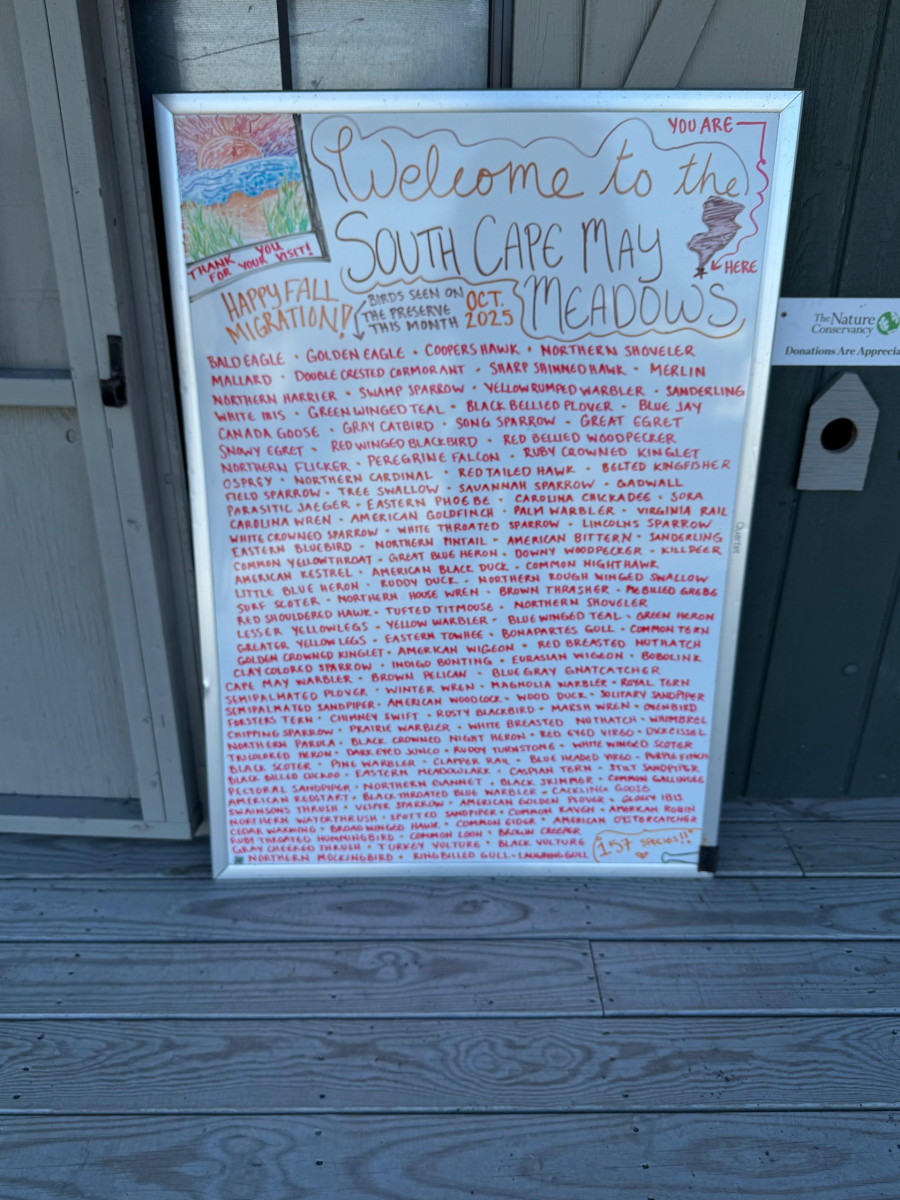 YOU ARE
Welcome to the
SOUTH CAPE MAY
HERE
MEADOWS
THANK YOU
FOR YOUR VISIT!
HAPPY FALL
MIGRATION!
BIRDS SEEN ON
THE PRESERVE
THIS MONTH
OCT.
2025
BALD EAGLE • GOLDEN EAGLE • COOPERS HAWK • NORTHERN SHOVELER
MALLARD • DOUBLE CRESTED CORMORANT • SHARP SHINNED HAWK • MERLIN
NORTHERN HARRIER • SWAMP SPARROW • YELLOW RUMPED WARBLER • SANDERLING
WHITE IBIS • GREEN WINGED TEAL • BLACK BELLIED PLOVER • BLUE JAY
CANADA GOOSE • GRAY CATBIRD • SONG SPARROW • GREAT EGRET
SNOWY EGRET • RED WINGED BLACKBIRD • RED BELLIED WOODPECKER
NORTHERN FLICKER • PEREGRINE FALCON • RUBY CROWNED KINGLET
OSPREY • NORTHERN CARDINAL • RED TAILED HAWK • BELTED KINGFISHER
FIELD SPARROW • TREE SWALLOW • SAVANNAH SPARROW • GADWALL
PARASITIC JAEGER • EASTERN PHOEBE • CAROLINA CHICKADEE • SORA
CAROLINA WREN • AMERICAN GOLDFINCH • PALM WARBLER • VIRGINIA RAIL
WHITE CROWNED SPARROW • WHITE THROATED SPARROW • LINCOLNS SPARROW
EASTERN BLUEBIRD • NORTHERN PINTAIL • AMERICAN BITTERN • SANDERLING
COMMON YELLOWTHROAT • GREAT BLUE HERON • DOWNY WOODPECKER • KILLDEER
AMERICAN KESTREL • AMERICAN BLACK DUCK • COMMON NIGHTHAWK
LITTLE BLUE HERON • RUDDY DUCK • NORTHERN ROUGH WINGED SWALLOW
SURF SCOTER • NORTHERN HOUSE WREN • BROWN THRASHER • PIE BILLED GREBE
RED SHOULDERED HAWK • TUFTED TITMOUSE • NORTHERN SHOVELER
LESSER YELLOWLEGS • YELLOW WARBLER • BLUE WINGED TEAL • GREEN HERON
GREATER YELLOW LEGS • EASTERN TOWHEE • BONAPARTES GULL • COMMON TERN
GOLDEN CROWNED KINGLET • AMERICAN WIGEON • RED BREASTED NUTHATCH
CLAY COLORED SPARROW • INDIGO BUNTING • EURASIAN WIGEON • BOBOLINK
CAPE MAY WARBLER • BROWN PELICAN • BLUE GRAY GNATCATCHER
SEMIPALMATED PLOVER • WINTER WREN • MAGNOLIA WARBLER • ROYAL TERN
SEMIPALMATED SANDPIPER • AMERICAN WOODCOCK • WOOD DUCK • SOLITARY SANDPIPER
FORSTERS TERN • CHIMNEY SWIFT • RUSTY BLACKBIRD • MARSH WREN • OVENBIRD
CHIPPING SPARROW • PRAIRIE WARBLER • WHITE BREASTED NUTHATCH • WHIMBREL
NORTHERN PARULA • BLACK CROWNED NIGHT HERON • RED EYED VIREO • DICKCISSEL
TRICOLORED HERON • DARK EYED JUNCO • RUDDY TURNSTONE • WHITE WINGED SCOTER
BLACK SCOTER • PINE WARBLER • CLAPPER RAIL • BLUE HEADED VIREO • PURPLE FINCH
BLACK BILLED CUCKOO • EASTERN MEADOWLARK • CASPIAN TERN • STILT SANDPIPER
PECTORAL SANDPIPER • NORTHERN GANNET • BLACK SKIMMER • COMMON GALLINULE
AMERICAN REDSTART • BLACK THROATED BLUE WARBLER • CACKLING GOOSE
SWAINSONS THRUSH • VESPER SPARROW • AMERICAN GOLDEN PLOVER • GLOSSY IBIS
NORTHERN WATERTHRUSH • SPOTTED SANDPIPER • COMMON RAVEN • AMERICAN ROBIN
CEDAR WAXWING • BROAD WINGED HAWK • COMMON EIDER • AMERICAN OYSTERCATCHER
RUBY THROATED HUMMINGBIRD • COMMON LOON • BROWN CREEPER
GRAY CHEEKED THRUSH • TURKEY VULTURE • BLACK VULTURE
NORTHERN MOCKINGBIRD • RING BILLED GULL • LAUGHING GULL
157 SPECIES!!
Quartet
The Nature
Conservancy
Donations Are Apprecia